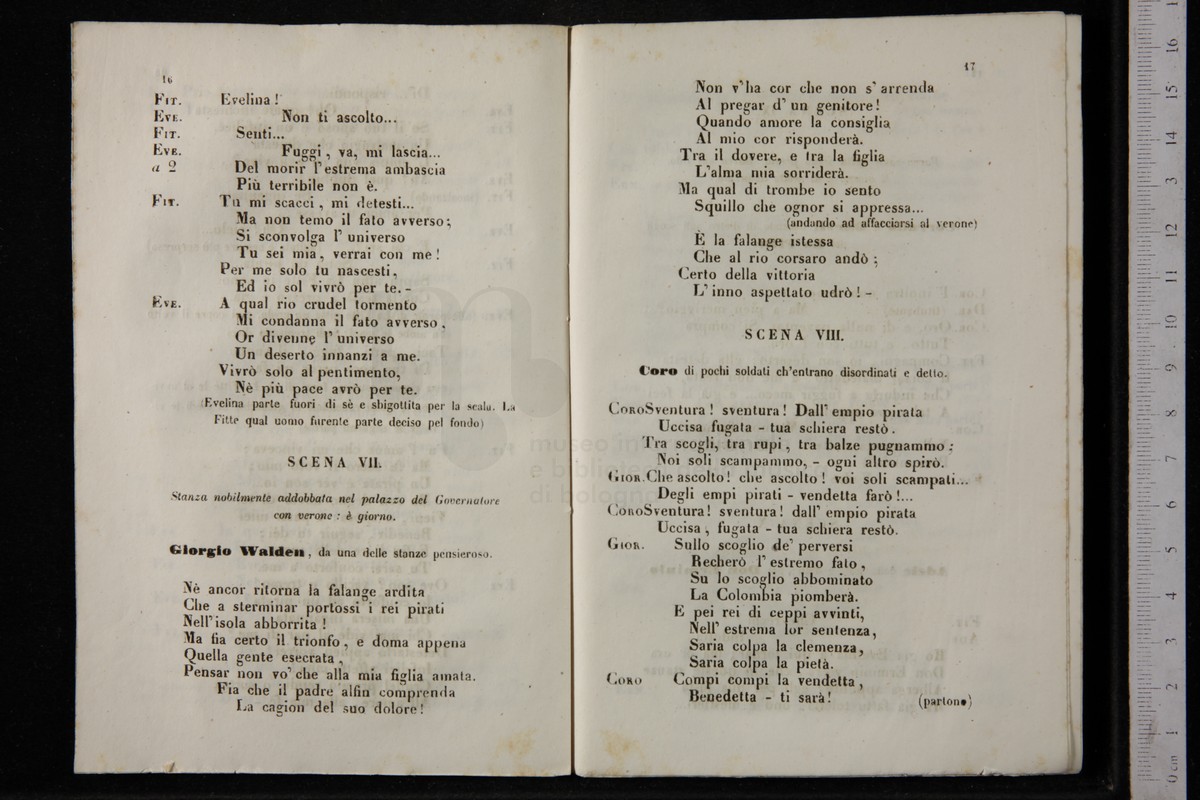 16
FIT. Evelina!
EVE. Non ti ascolto...
FIT. Senti...
EVE. Fuggi, va, mi lascia...
a 2 Del morir l'estrema ambascia
Più terribile non è.
FIT. Tu mi scacci, mi detesti...
Ma non temo il fato avverso;
Si sconvolga l'universo
Tu sei mia, verrai con me!
Per me solo tu nascesti,
Ed io sol vivrò per te. -
EVE. A qual rio crudel tormento
Mi condanna il fato avverso,
Or divenne l'universo
Un deserto innanzi a me.
Vivrò solo al pentimento,
Nè più pace avrò per te.
(Evelina parte fuori di sè e sbigottita per la scala. La
Fitte qual uomo furente parte deciso pel fondo)
SCENA VII.
Stanza nobilmente addobbata nel palazzo del Governatore
con verone : è giorno.
Giorgio Walden, da una delle stanze pensieroso.
Nè ancor ritorna la falange ardita
Che a sterminar portossi i rei pirati
Nell'isola abborrita!
Ma fia certo il trionfo, e doma appena
Quella gente esecrata,
Pensar non vo' che alla mia figlia amata.
Fia che il padre alfin comprenda
La cagion del suo dolore!
17
Non v'ha cor che non s'arrenda
Al pregar d'un genitore!
Quando amore la consiglia
Al mio cor risponderà.
Tra il dovere, e tra la figlia
L'alma mia sorriderà.
Ma qual di trombe io sento
Squillo che ognor si appressa...
(andando ad affacciarsi al verone)
È la falange istessa
Che al rio corsaro andò;
Certo della vittoria
L'inno aspettato udrò! -
SCENA VIII.
Coro di pochi soldati ch'entrano disordinati e detto.
CORO Sventura! sventura! Dall'empio pirata
Uccisa fugata - tua schiera restò.
Tra scogli, tra rupi, tra balze pugnammo;
Noi soli scampammo, - ogni altro spirò.
GIOR. Che ascolto! che ascolto! voi soli scampati...
Degli empi pirati - vendetta farò!...
CORO Sventura! sventura! dall'empio pirata
Uccisa, fugata - tua schiera restò.
GIOR. Sullo scoglio de' perversi
Recherò l'estremo fato,
Su lo scoglio abbominato
La Colombia piomberà.
E pei rei di ceppi avvinti,
Nell'estrema lor sentenza,
Saria colpa la clemenza,
Saria colpa la pietà.
CORO Compi compi la vendetta,
Benedetta - ti sarà!
(partono)